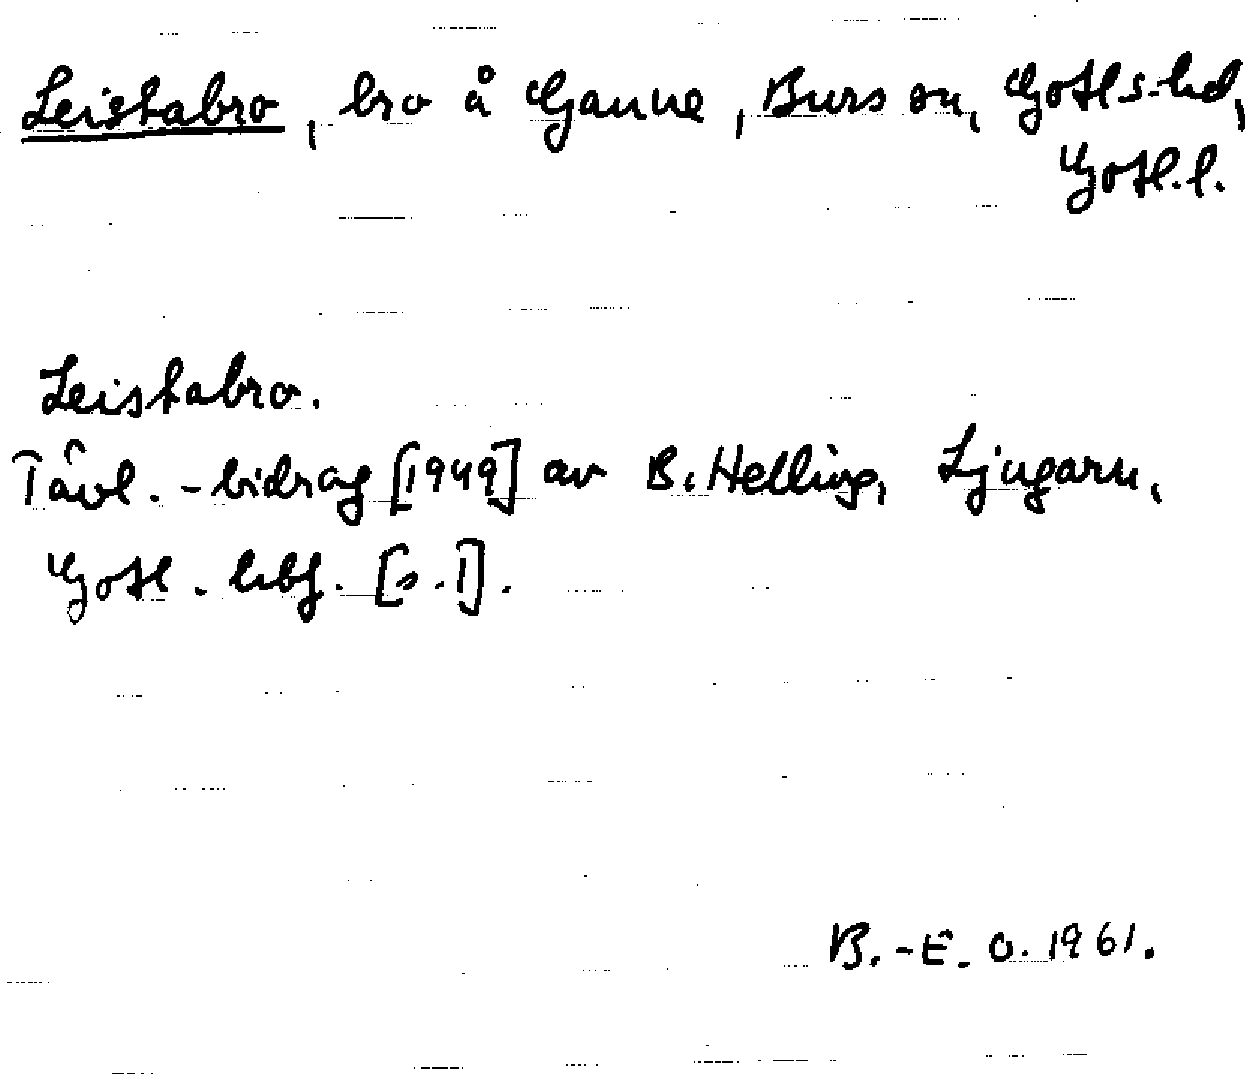 Leistabro, bro å Ganne, Burs sn, Gotl s. hd,
Gotl. l.
Leistabro.
Tävl.-bidrag [1949] av B. Helling, Ljugarn,
Gotl. hbf. [s. 1].
B.-E. O. 1961.